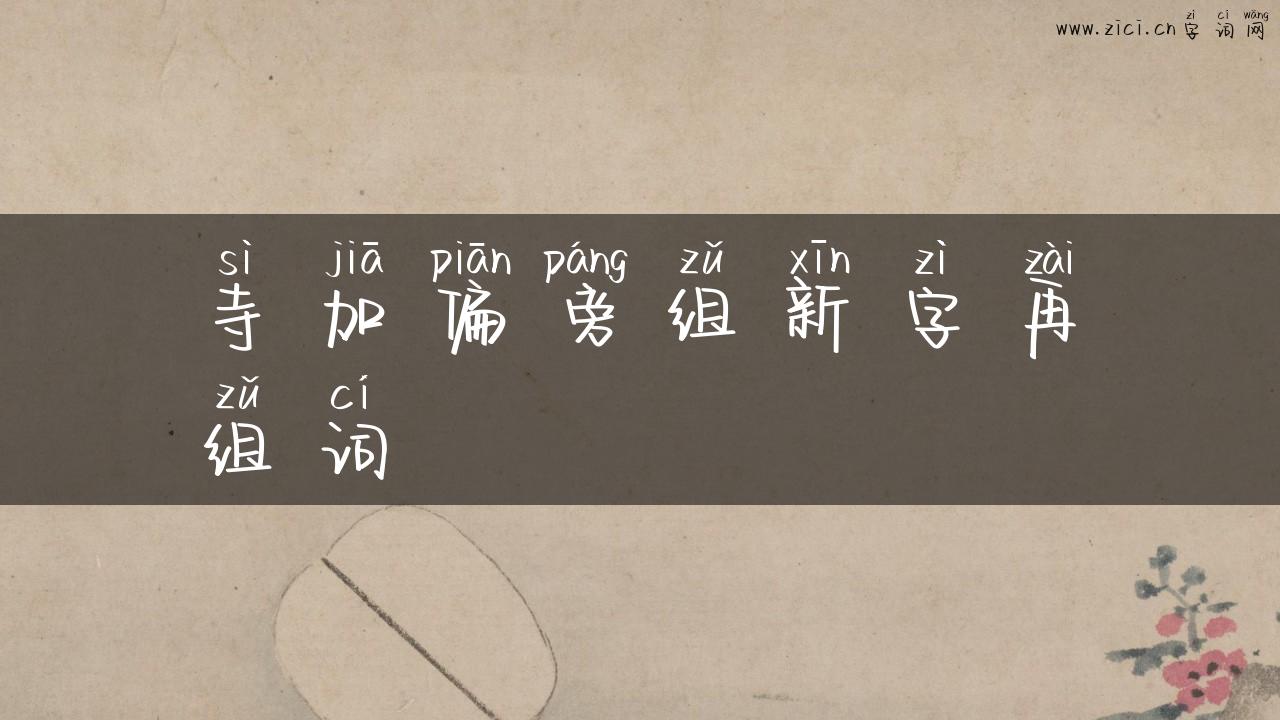 zì cí wǎng
www.zici.cn字词网
sì jiā piān páng zǔ xīn zì zài
寺加偏旁组新字再
zǔ cí
组词